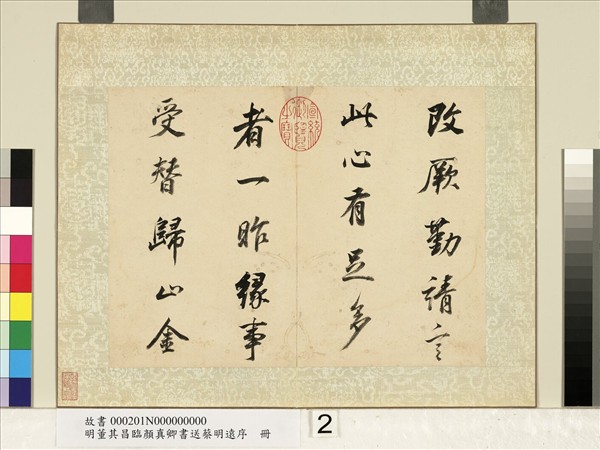 改厥勤請言
此心有足多
者一昨緣事
受替歸止金
宣統御覽之寶
故書 000201N000000000
明董其昌臨顏真卿書送蔡明遠序 冊
2